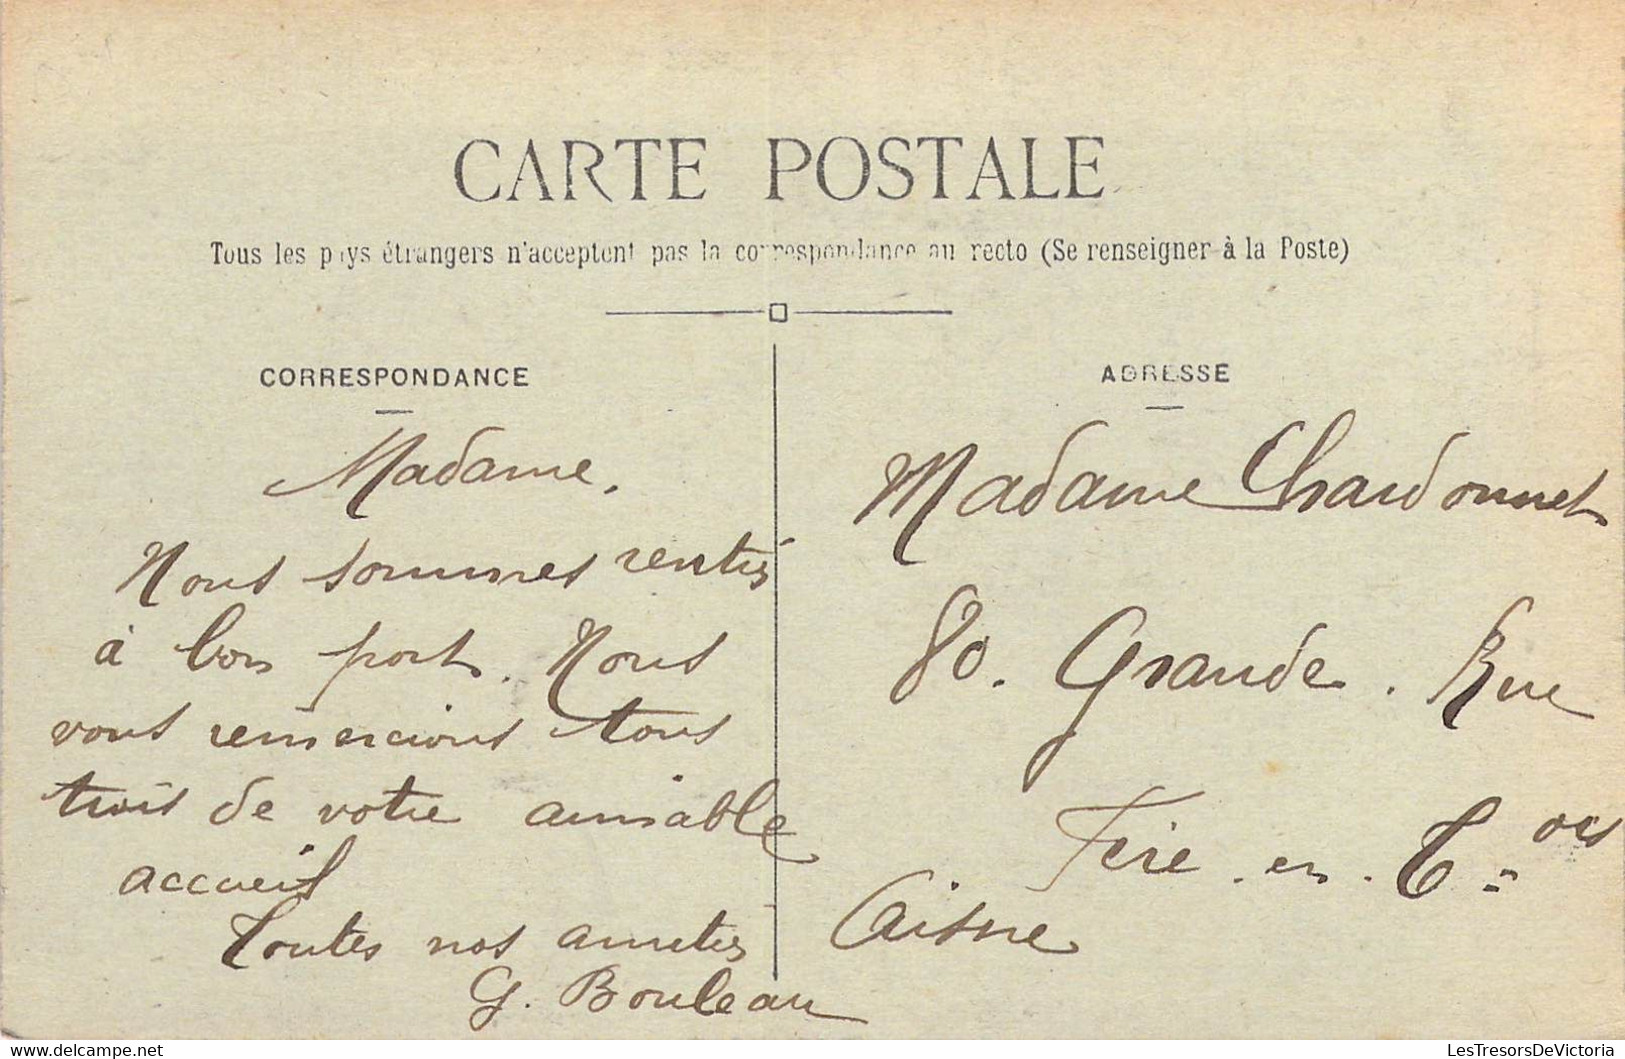 CARTE POSTALE
Tous les pays étrangers n'acceptent pas la correspondance au recto (Se renseigner à la Poste)
CORRESPONDANCE
Madame.
Nous sommes rentrés
à bon port. Nous
vous remercions tous
trois de votre aimable
accueil
Toutes nos amitiés
G. Bouleau
ADRESSE
Madame Chardonnet
80. Grande. Rue
Fère. en. T=ois
Aisne
www.delcampe.net
LesTresorsDeVictoria